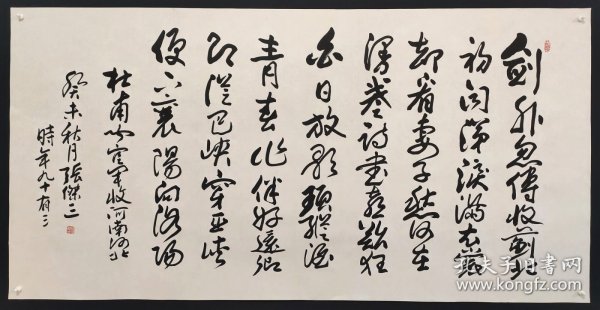 劍外忽傳收薊北
初聞涕淚滿衣裳
却看妻子愁何在
漫卷詩書喜欲狂
白日放歌須縱酒
青春作伴好還鄉
即從巴峽穿巫峽
便下襄陽向洛陽
杜甫聞官軍收河南河北
癸未秋月張傑三
時年九十有三
孔夫子旧书网
www.kongfz.com